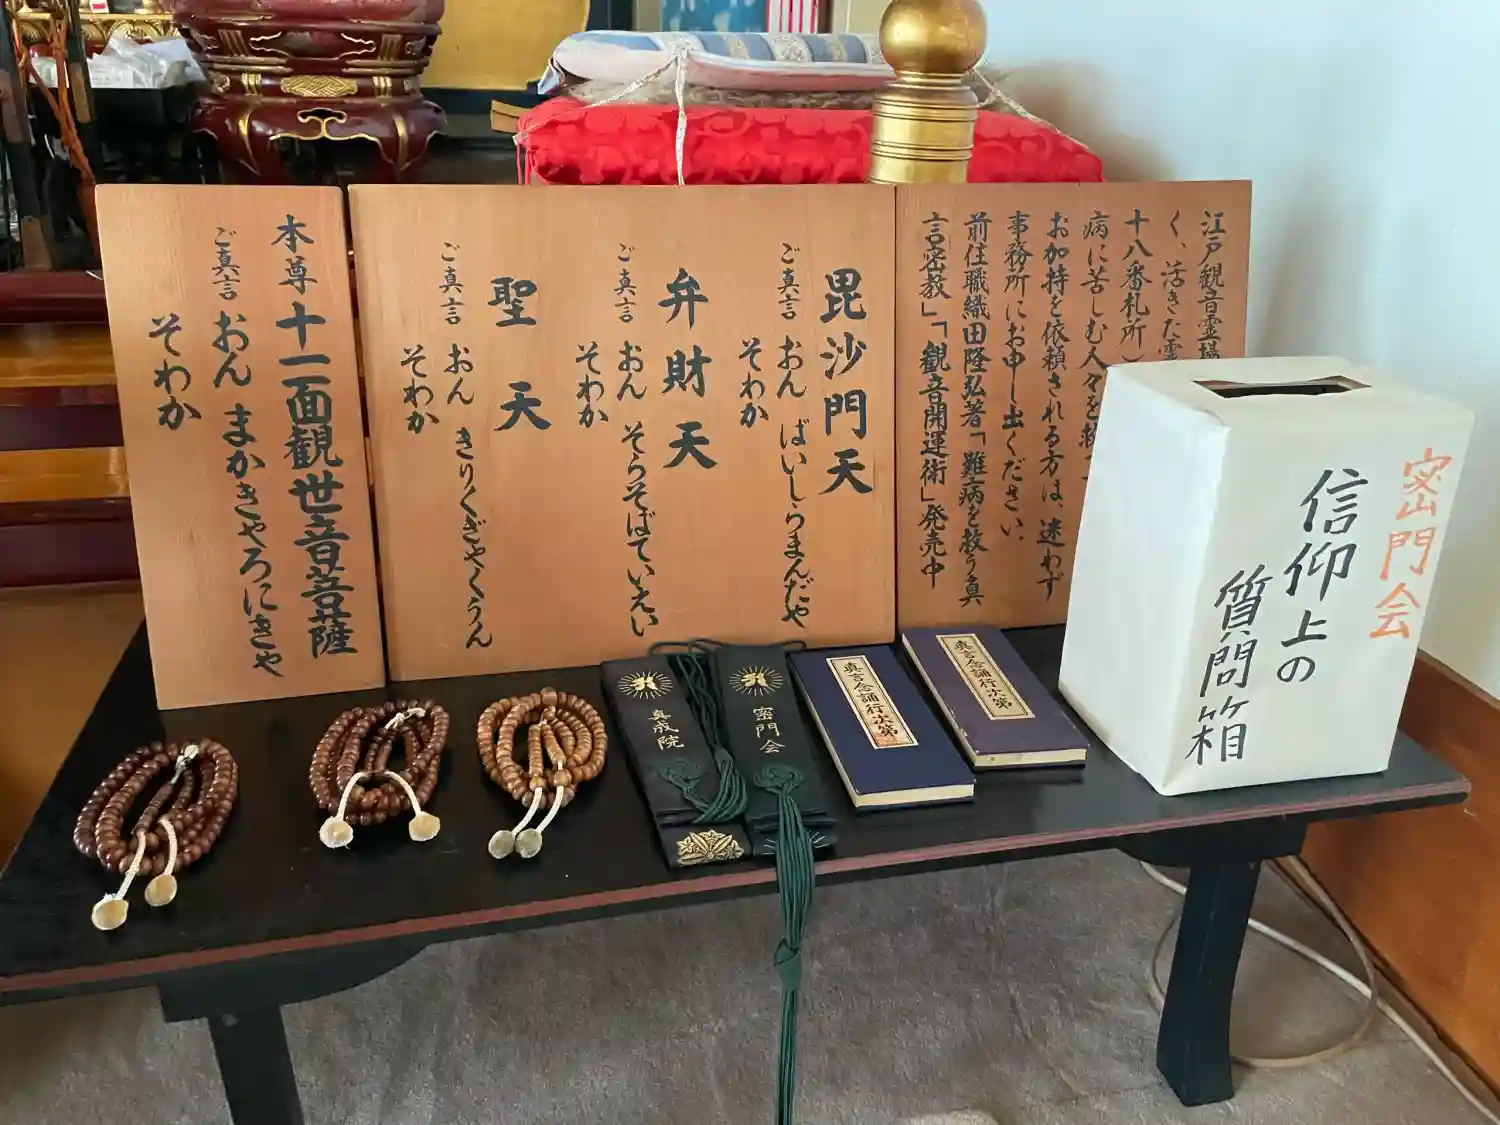 本尊 十一面観世音菩薩
ご真言 おん まかきゃろにきゃ
そわか
毘沙門天
ご真言 おん ばいしらまんだや
そわか
弁財天
ご真言 おん そらそばていえい
そわか
聖天
ご真言 おん きりくぎゃくうん
そわか
江戸観音霊場
く、活きた霊
十八番札所）
病に苦しむ人々を
お加持を依頼される方は、迷わず
事務所にお申し出ください。
前住職織田隆弘著「難病を救う真
言密教」「観音開運術」発売中
真成院
密門会
真言念誦行次第
真言念誦行次第
密門会
信仰上の
質問箱